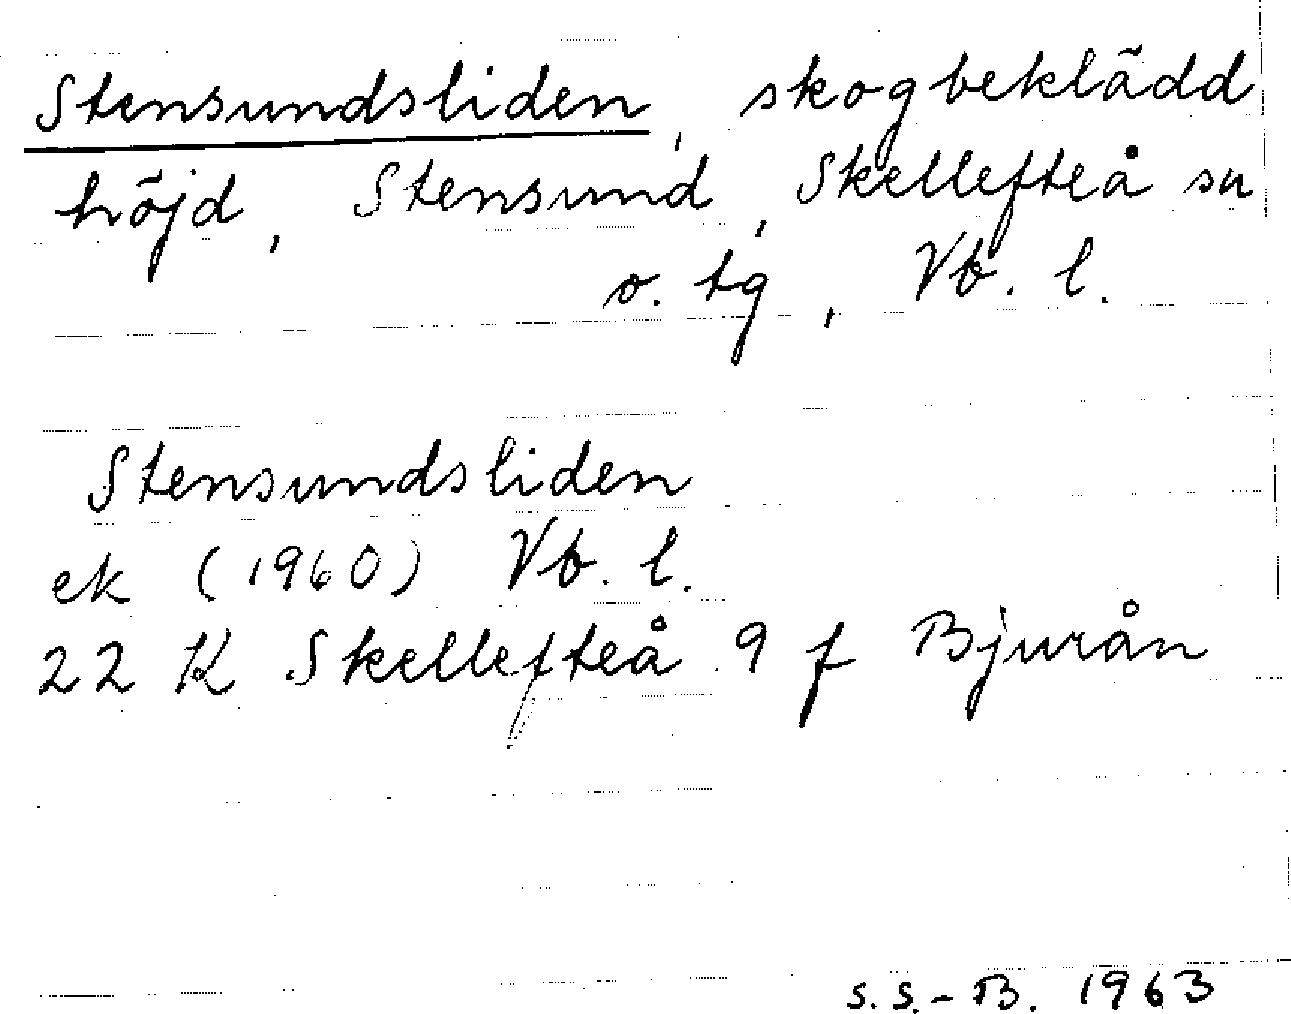 Stensundsliden, skogbeklädd
höjd, Stensund, Skellefteå sn
o. tg, Vb. l.
Stensundsliden
ek (1960) Vb. l.
22 K Skellefteå 9 f Bjurån
S.S.-B. 1963